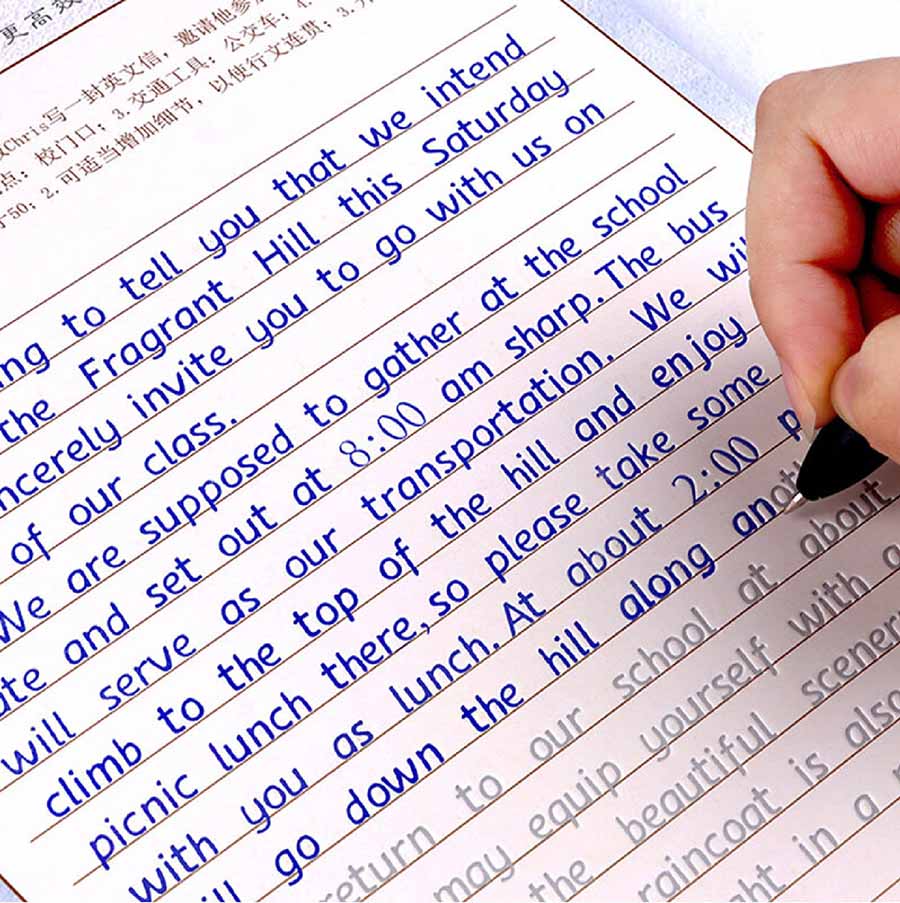 更高效
Chris写一封英文信，邀请他参
点：校门口；3.交通工具：公交车；4.
50；2.可适当增加细节，以使行文连贯；3.
ng to tell you that we intend
the Fragrant Hill this Saturday
ncerely invite you to go with us on
of our class.
We are supposed to gather at the school
ate and set out at 8:00 am sharp. The bus
will serve as our transportation. We wil
climb to the top of the hill and enjoy
picnic lunch there, so please take some
with you as lunch. At about 2:00 p
ill go down the hill along anoth
return to our school at about
may equip yourself with a
the beautiful scener
raincoat is also
ht in a